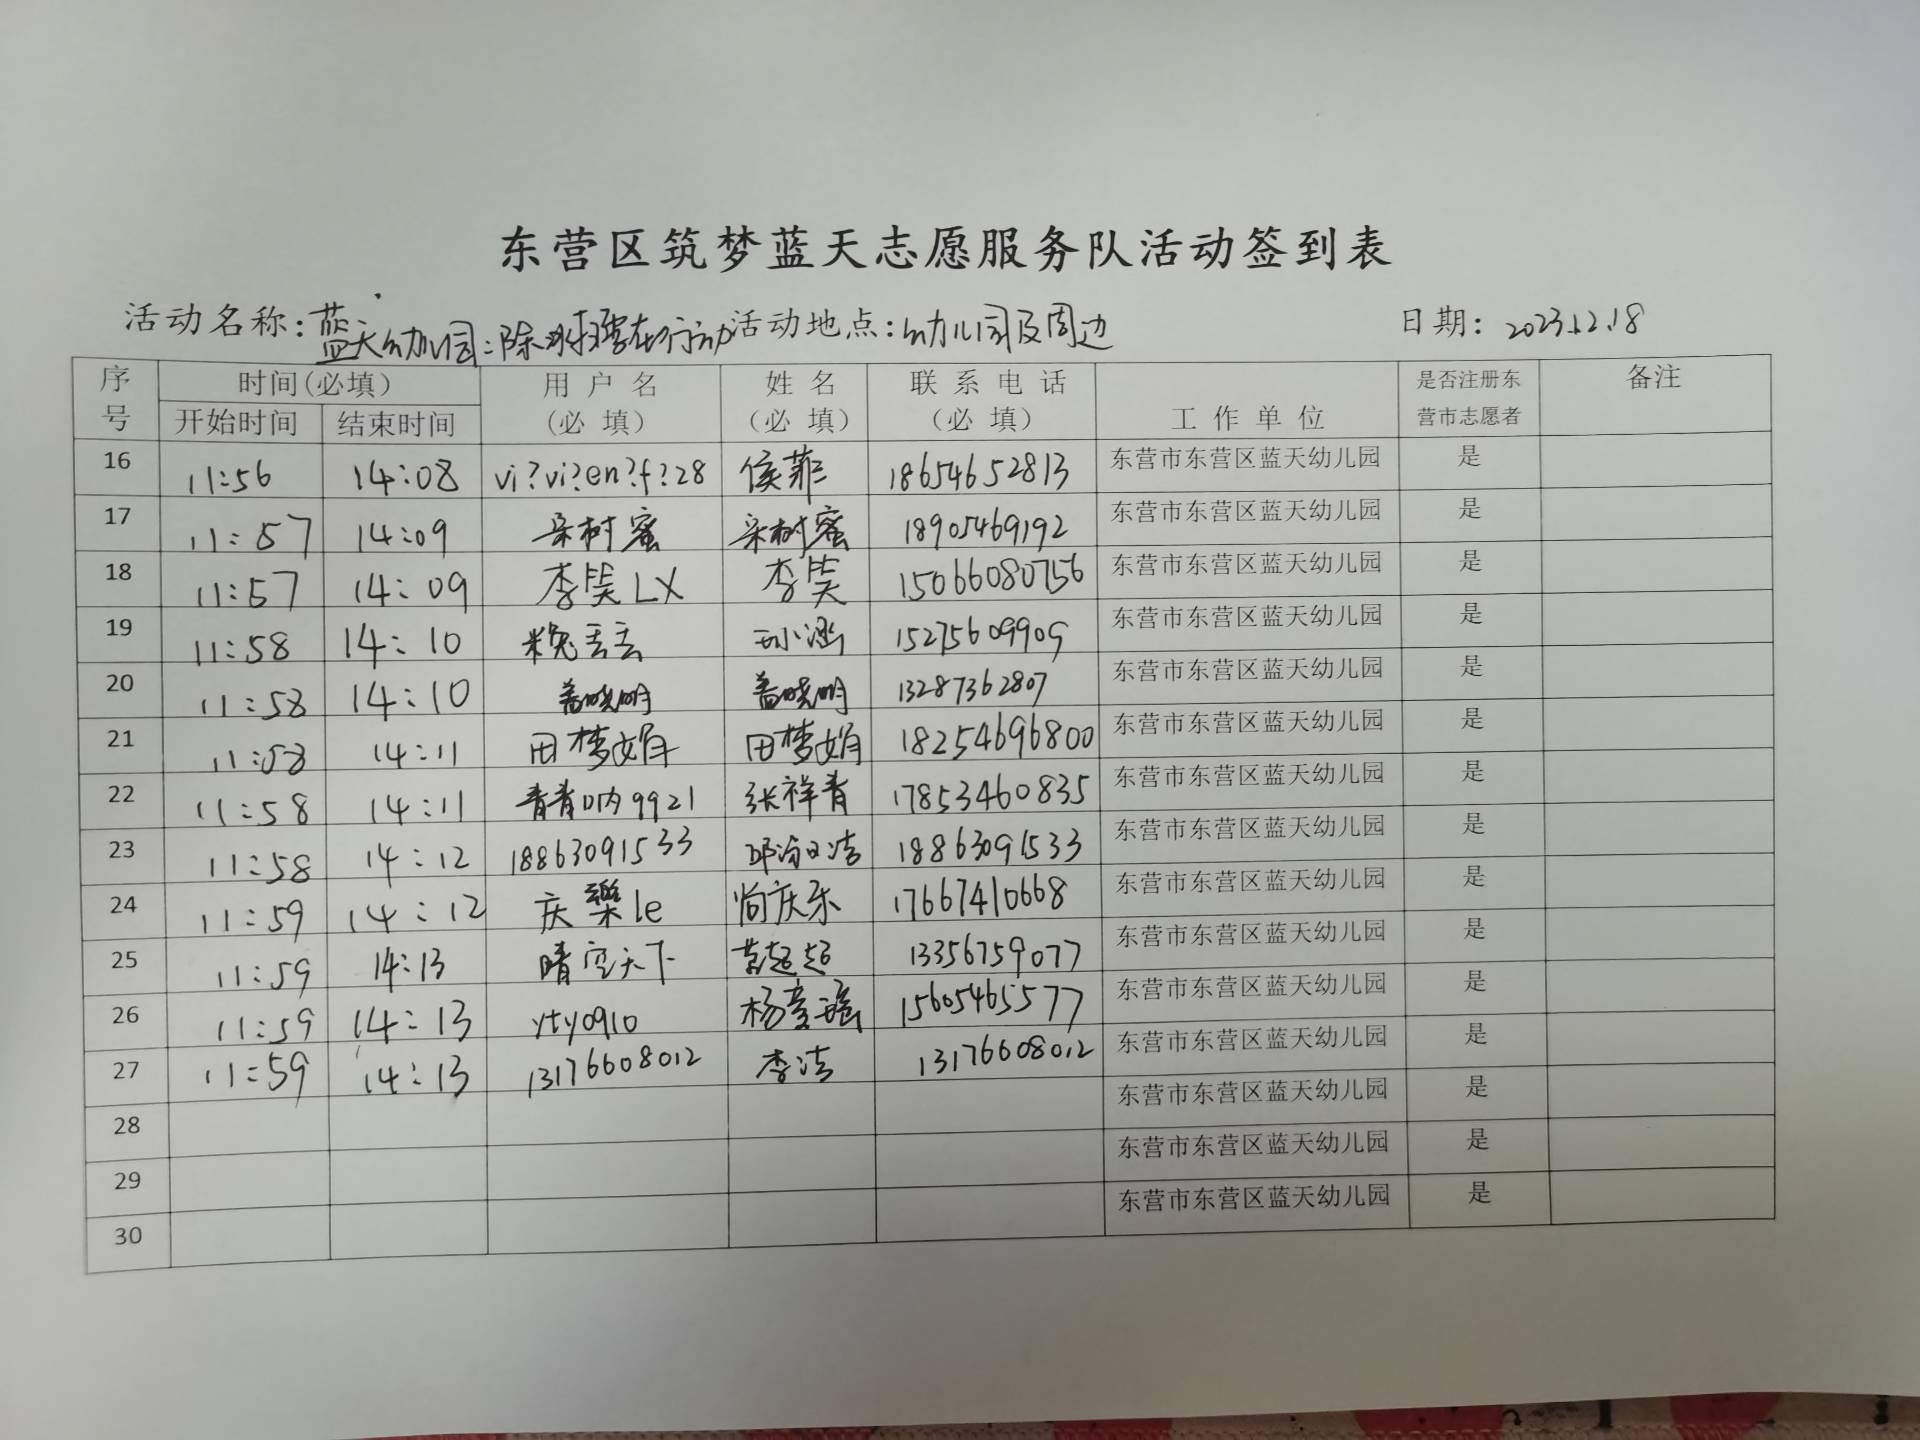 东营区筑梦蓝天志愿服务队活动签到表
活动名称:蓝天幼儿园:除冰扫雪在行动 活动地点:幼儿园及周边 日期:2023.12.18
序号 时间(必填) 用户名(必填) 姓名(必填) 联系电话(必填) 工作单位 是否注册东营市志愿者 备注
开始时间 结束时间
16 11:56 14:08 vi?vi?en?f?28 侯菲 18654652813 东营市东营区蓝天幼儿园 是
17 11:57 14:09 18905469192 东营市东营区蓝天幼儿园 是
18 11:57 14:09 李昊LX 李昊 15066080756 东营市东营区蓝天幼儿园 是
19 11:58 14:10 15275609909 东营市东营区蓝天幼儿园 是
20 11:58 14:10 盖晓明 盖晓明 13287362807 东营市东营区蓝天幼儿园 是
21 11:58 14:11 田梦娟 田梦娟 18254696800 东营市东营区蓝天幼儿园 是
22 11:58 14:11 青青呐9921 张祥青 17853460835 东营市东营区蓝天幼儿园 是
23 11:58 14:12 18863091533 18863091533 东营市东营区蓝天幼儿园 是
24 11:59 14:12 庆樂le 尚庆乐 17667410668 东营市东营区蓝天幼儿园 是
25 11:59 14:13 晴空天下 黄超超 13356759077 东营市东营区蓝天幼儿园 是
26 11:59 14:13 yty0910 15605465577 东营市东营区蓝天幼儿园 是
27 11:59 14:13 13176608012 李洁 13176608012 东营市东营区蓝天幼儿园 是
28 东营市东营区蓝天幼儿园 是
29 东营市东营区蓝天幼儿园 是
30 东营市东营区蓝天幼儿园 是